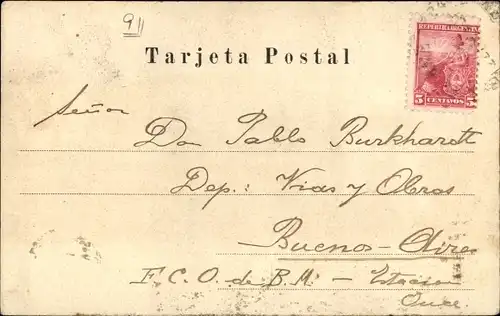 911
Tarjeta Postal
REPUBLICA ARGENTINA
5 CENTAVOS 5
Señor
Don Pablo Burkhardt
Dep: Vias y Obras
Buenos-Aires
F. C. O. de B. M. - Estacion
Once.